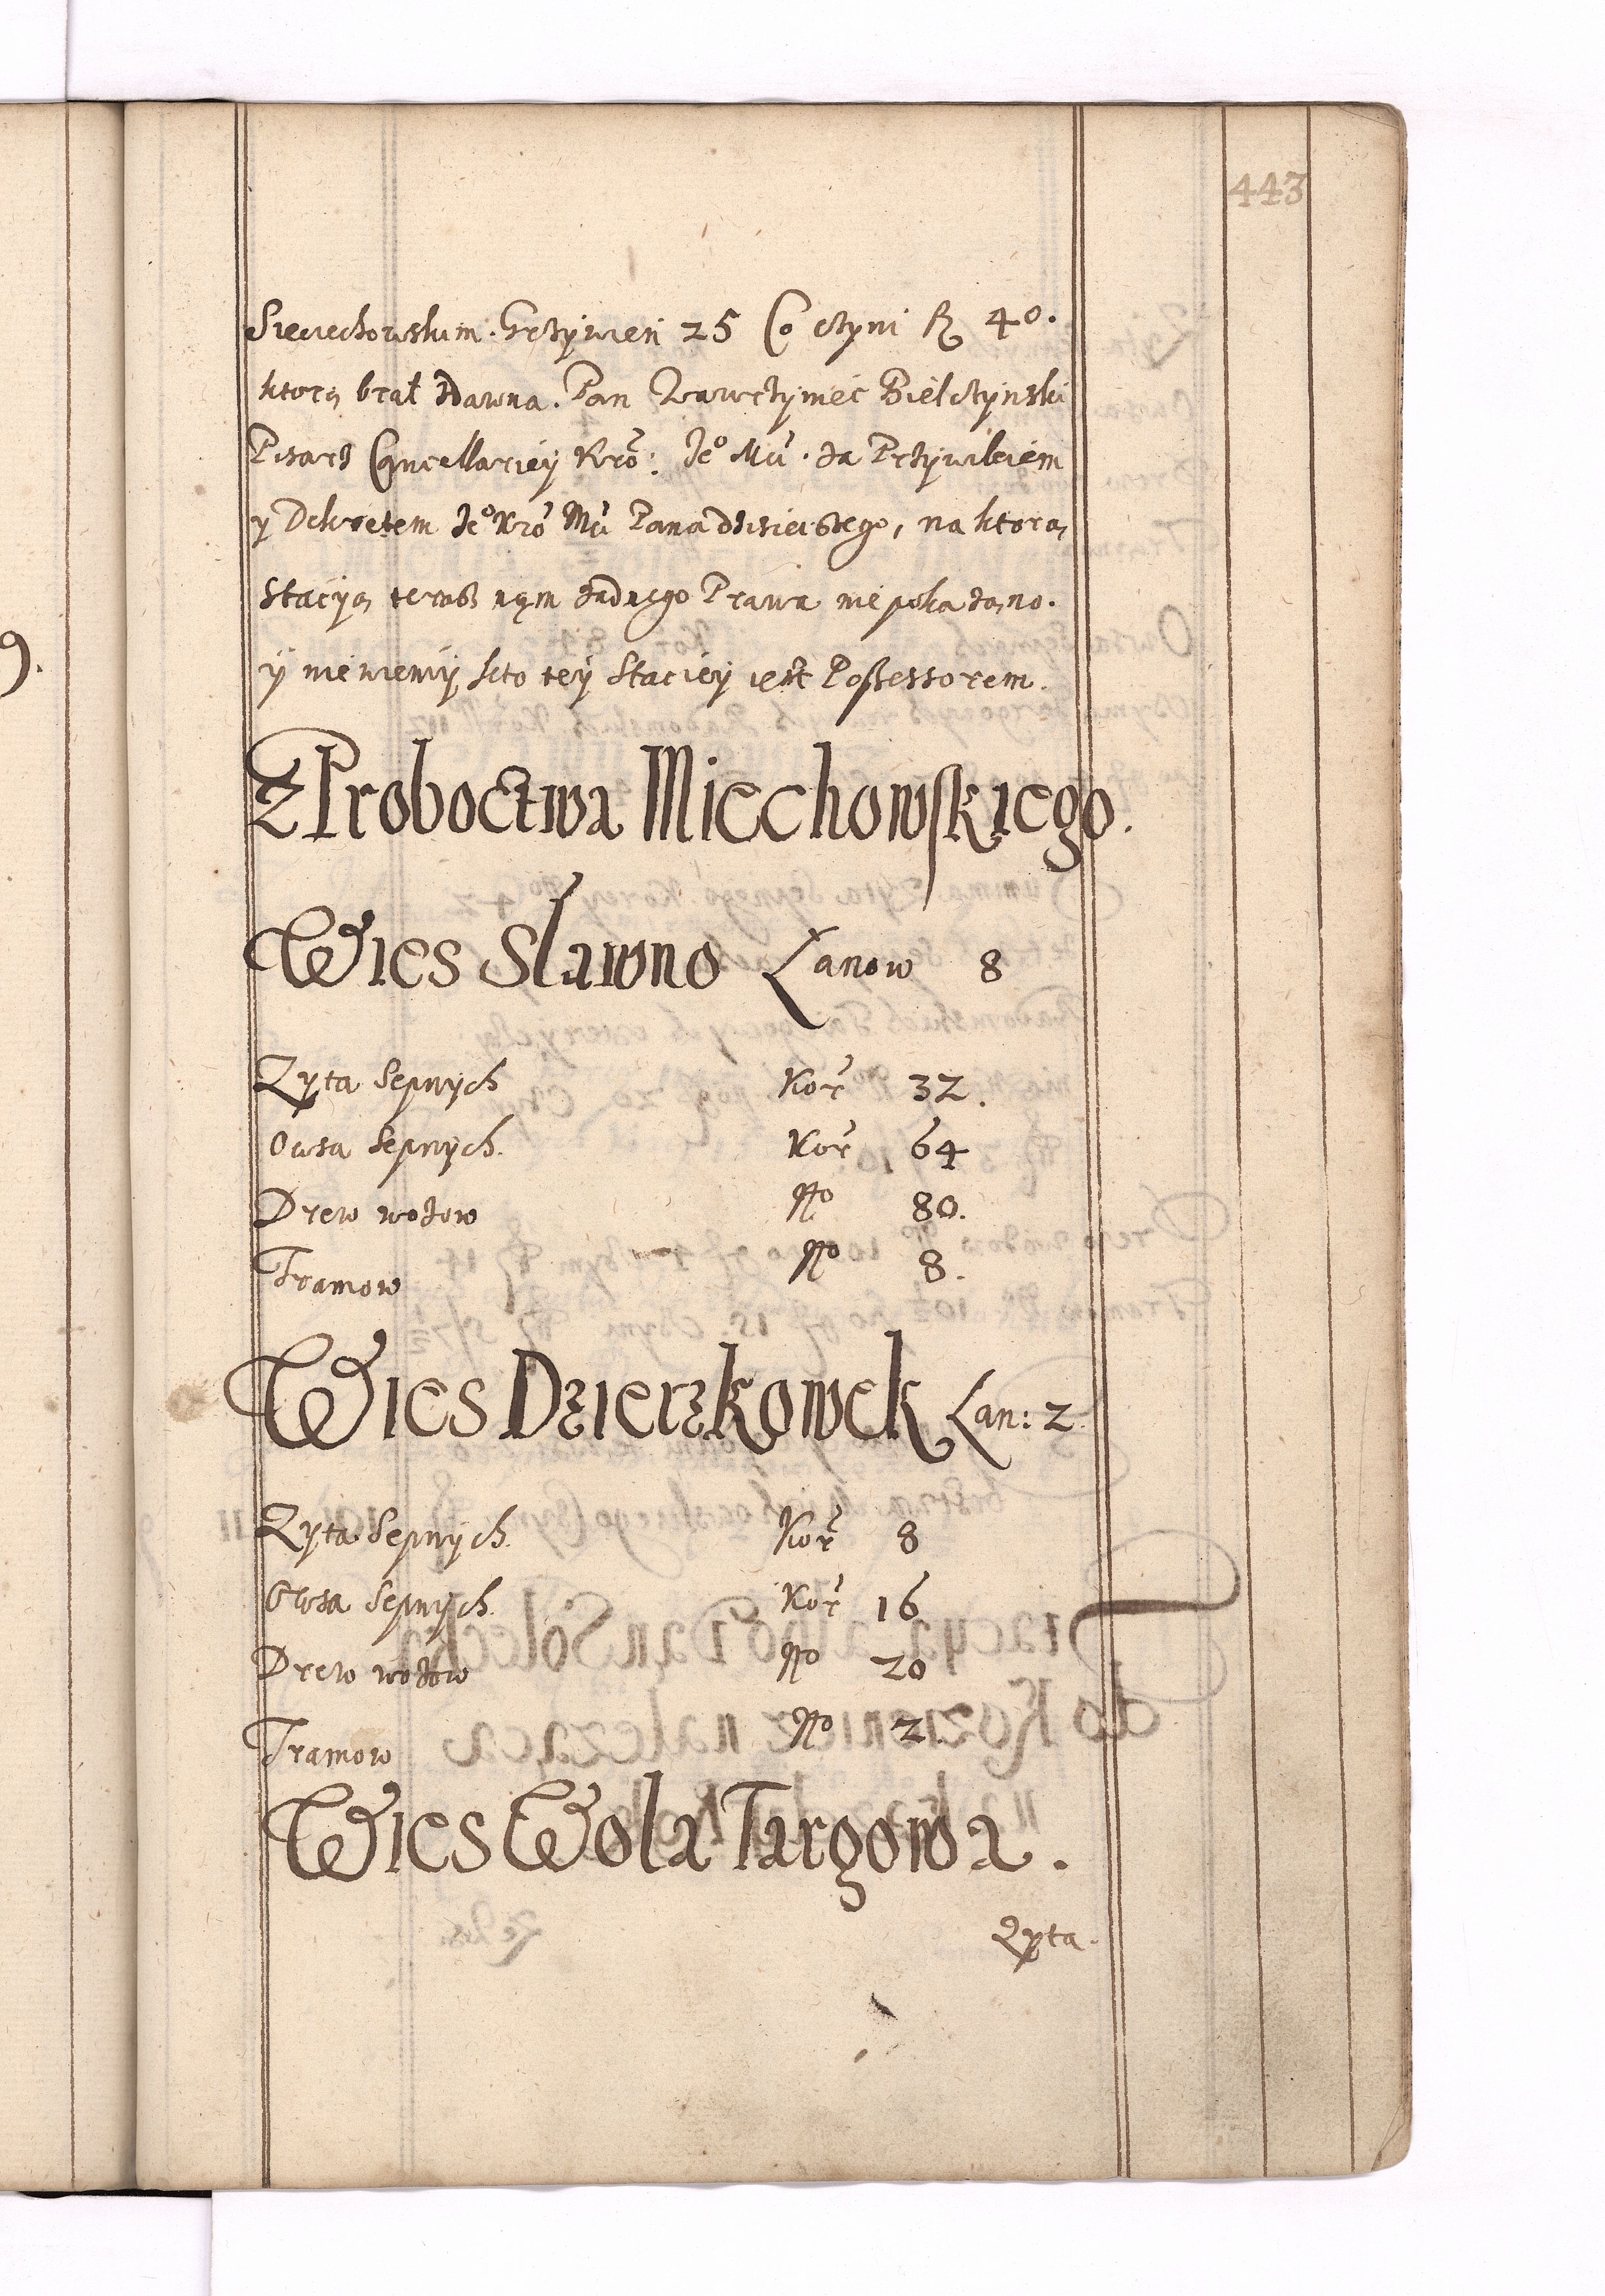 443
Sieciechowskim. Grzywien 25 Co czyni fl 40.
ktorą brał zdawna. Pan Wawrzyniec Bielczynski
Pisarz Cancellariey Kro: Je° Mci. za Przywileiem
y Dekretem Je° Kro Mci Pana dzisieiszego, na ktorą
Stacyą terasz nąm zadnego Prawa nie pokazano.
ÿ nie wiemÿ kto teÿ Stacieÿ iest Possessorem.
Z Proboctwa Miechowskiego.
Wies Slawno Łanow 8
Zyta Sepnych Kor 32.
Owsa Sepnych. Kor 64
Drew wozow No 80.
Tramow No 8.
Wies Dzierzkowek Łan: 2.
Zyta Sepnych. Kor 8
Owsa Sepnych. Kor 16
Drew wozow No 20
Tramow No 2.
Wies Wola Targowa.
Zyta.